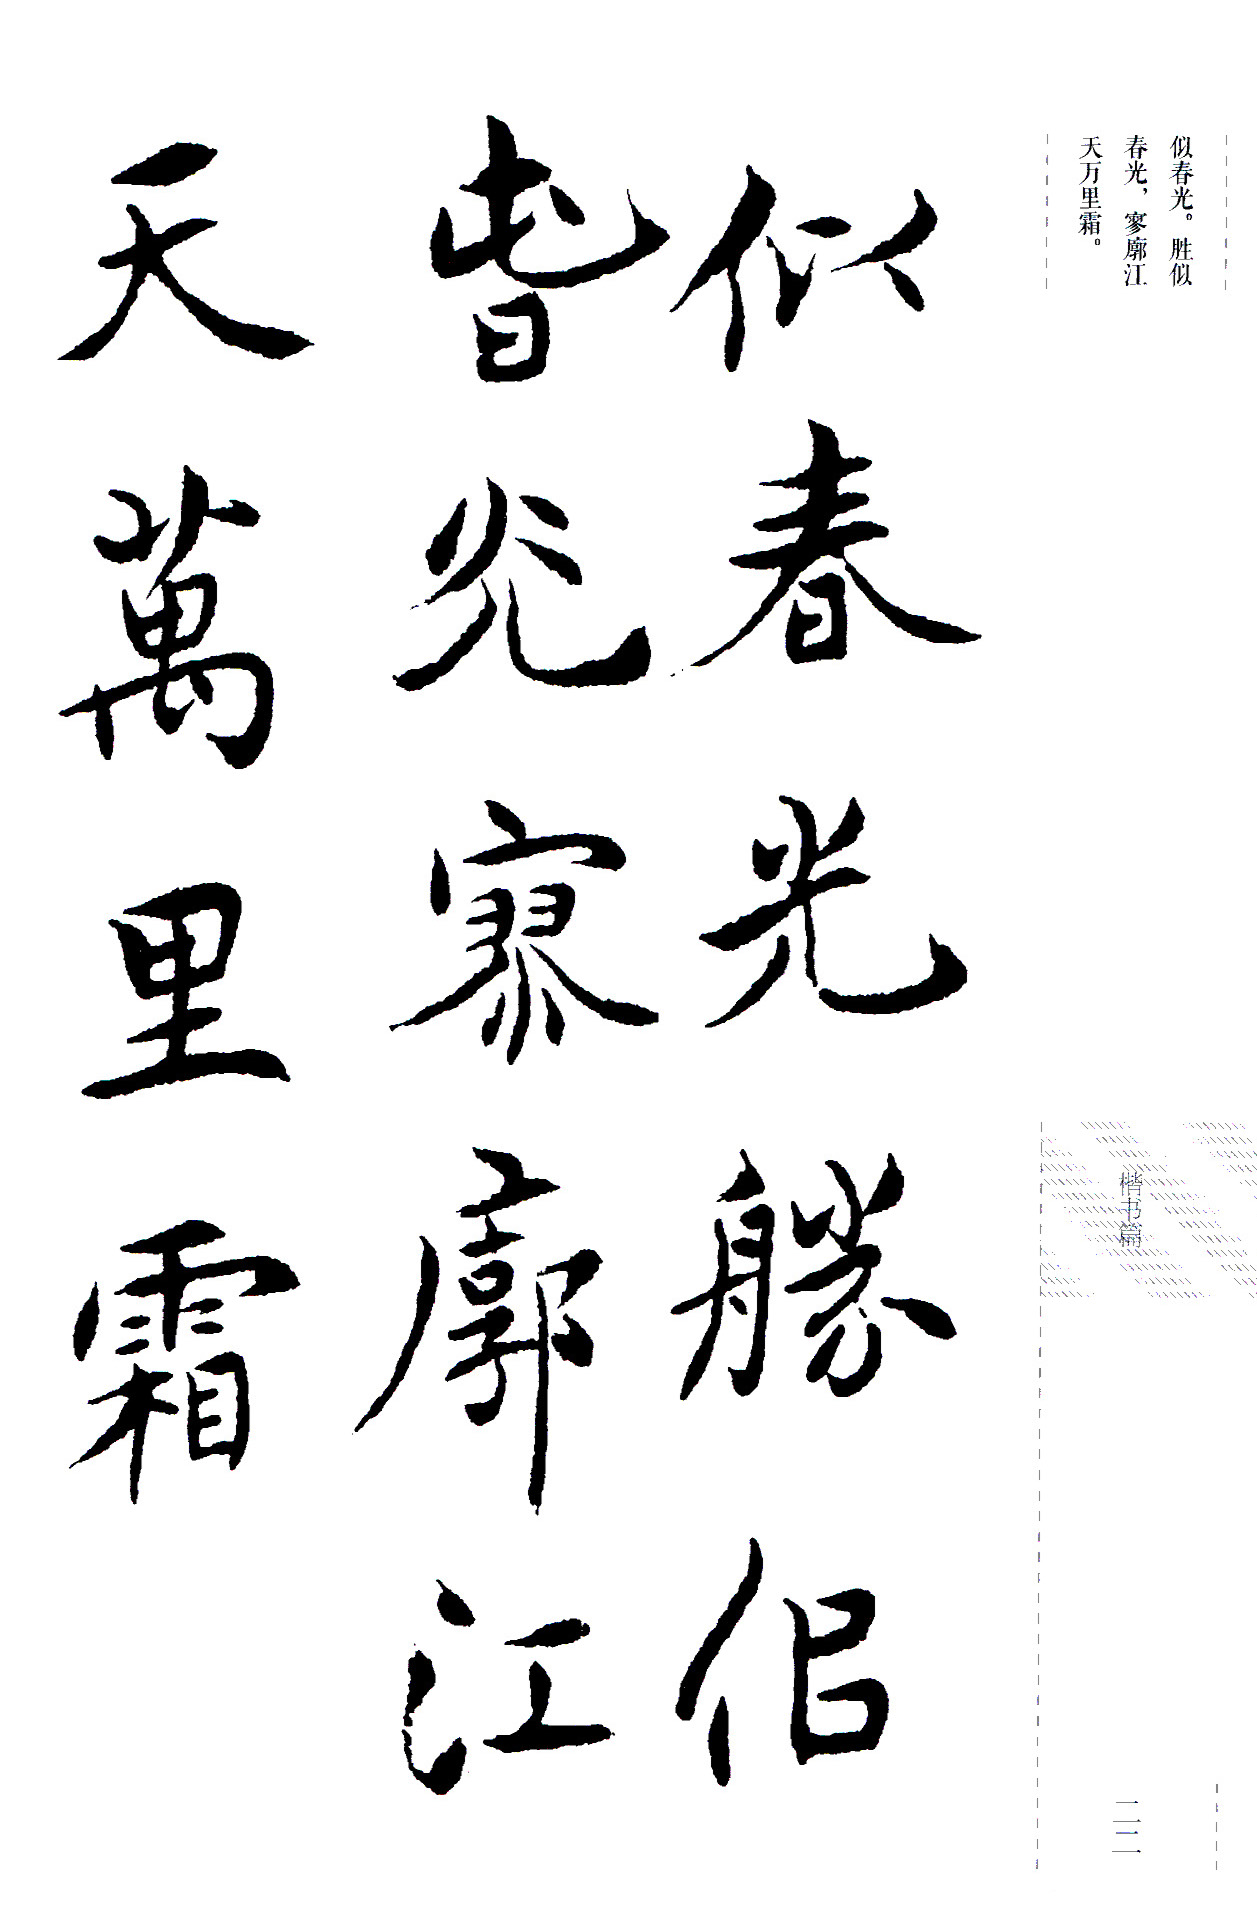 似春光。胜似
春光，寥廓江
天万里霜。
楷书篇
二二
似春光勝佀
旾灮寥廓江
天萬里霜